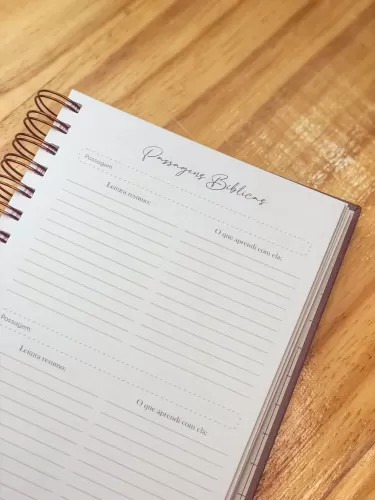 Passagens Bíblicas
Passagem:
Leitura resumo:
O que aprendi com ela:
Passagem:
Leitura resumo:
O que aprendi com ela: